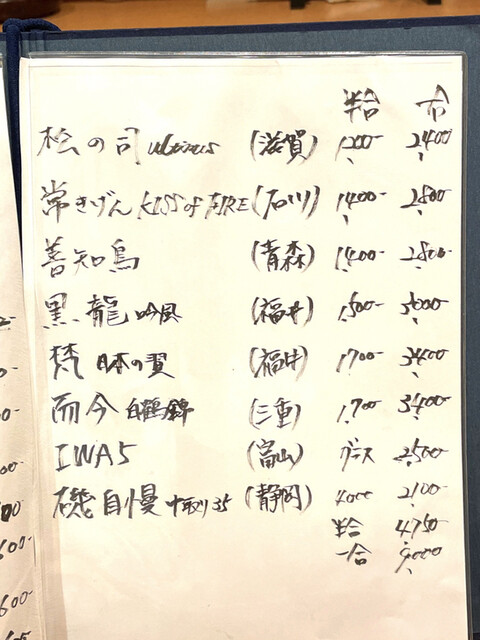 半合 一合
松の司 ultimus (滋賀) 1,200- 2,400-
常きげん KISS of FIRE (石川) 1,400- 2,800-
善知鳥 (青森) 1,400- 2,800-
黒龍 吟風 (福井) 1,500- 3,000-
梵 日本の翼 (福井) 1,700- 3,400-
而今 白鶴錦 (三重) 1,700- 3,400-
IWA5 (富山) グラス 2,500-
磯自慢 中取り35 (静岡) 2,100-
半合 4,750-
一合 9,000-